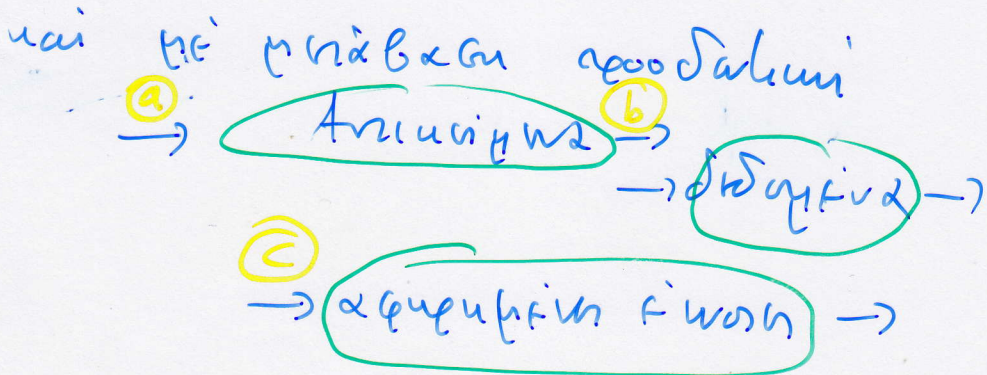 καί μέ μετάβαση προοδευτική
ⓐ → Αντικείμενα ⓑ →
→ δεδομένα →
ⓒ → αφηρημένη έννοια →